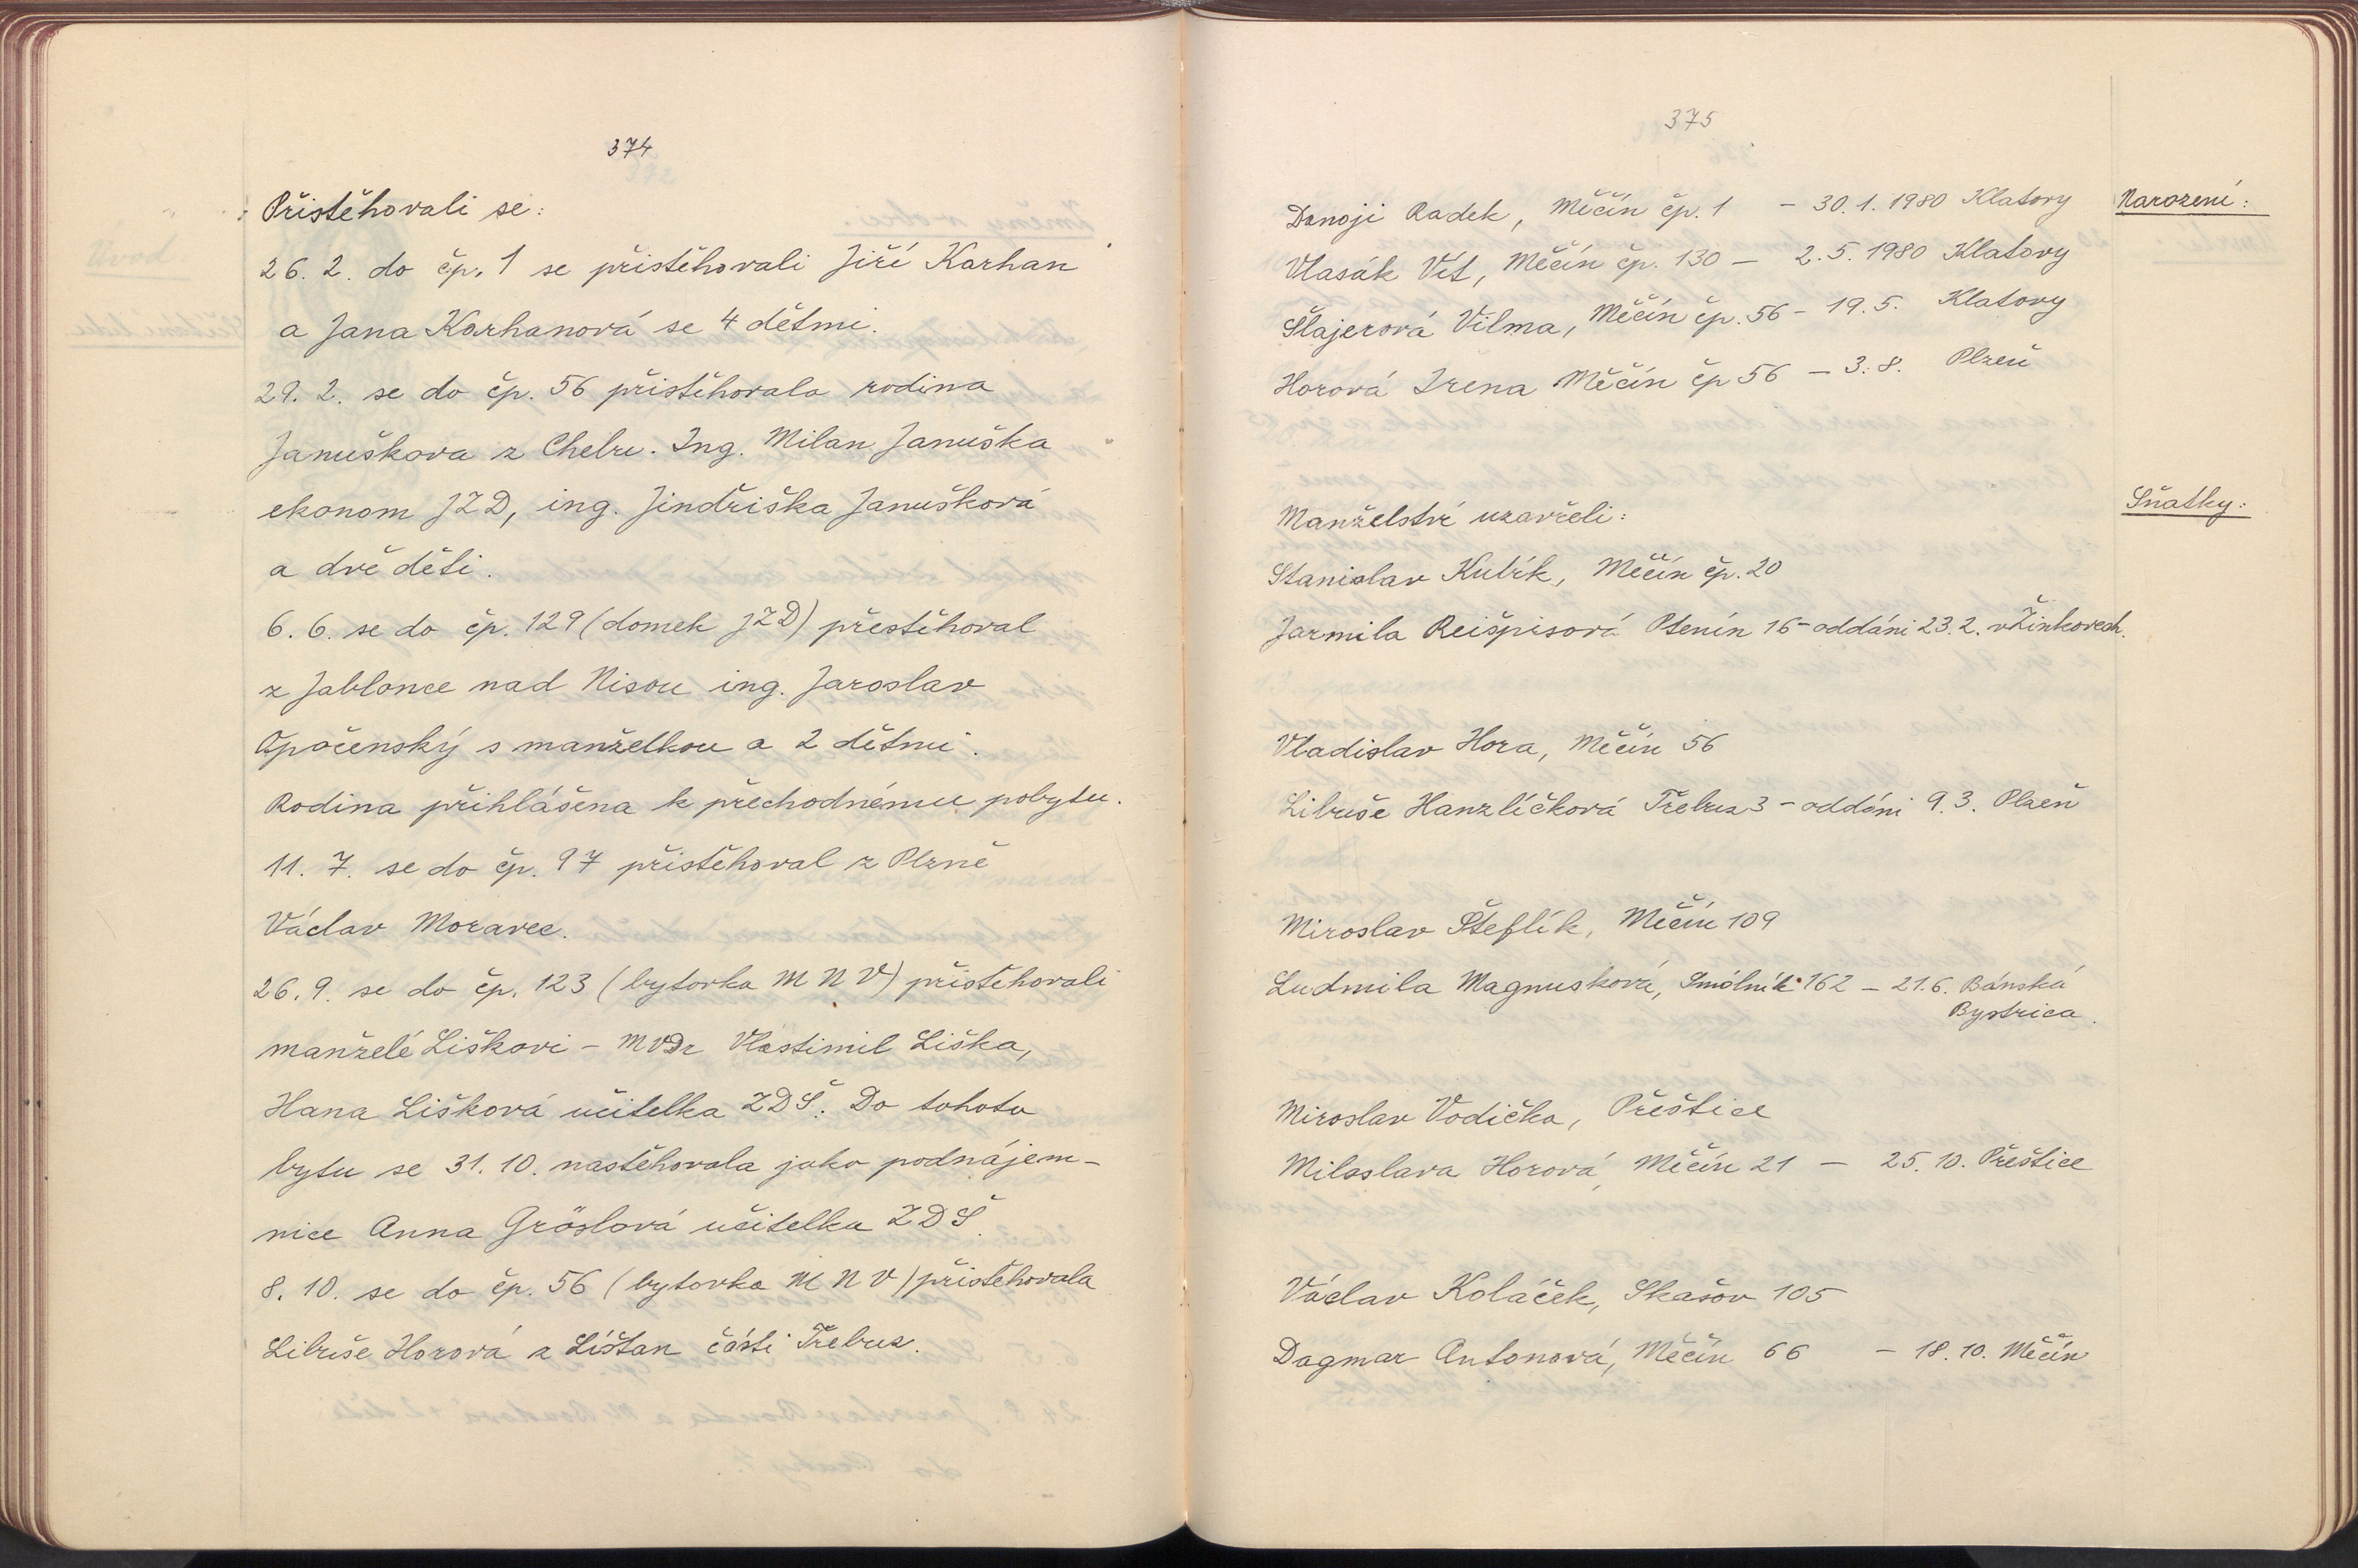 374
Přistěhovali se:
26. 2. do čp. 1 se přistěhovali Jiří Karhan
a Jana Karhanová se 4 dětmi.
29. 2. se do čp. 56 přistěhovala rodina
Januškova z Chebu. Ing. Milan Januška
ekonom JZD, ing. Jindřiška Janušková
a dvě děti.
6. 6. se do čp. 129 (domek JZD) přestěhoval
z Jablonce nad Nisou ing. Jaroslav
Opočenský s manželkou a 2 dětmi.
Rodina přihlášena k přechodnému pobytu.
11. 7. se do čp. 97 přistěhoval z Plzně
Václav Moravec.
26. 9. se do čp. 123 (bytovka MNV) přistěhovali
manželé Liškovi - MVDr Vlastimil Liška,
Hana Lišková učitelka ZDŠ. Do tohoto
bytu se 31. 10. nastěhovala jako podnájem-
nice Anna Gröslová učitelka ZDŠ.
8. 10. se do čp. 56 (bytovka MNV) přistěhovala
Libuše Horová z Líšťan části Třebuz.
375
Narození:
Donoji Radek, Měčín čp. 1 - 30. 1. 1980 Klatovy
Vlasák Vít, Měčín čp. 130 - 2. 5. 1980 Klatovy
Šlajerová Vilma, Měčín čp. 56 - 19. 5. Klatovy
Horová Irena Měčín čp 56 - 3. 8. Plzeň
Sňatky:
Manželství uzavřeli:
Stanislav Kubík, Měčín čp. 20
Jarmila Reišpisová Ptenín 16 - oddáni 23. 2. v Žinkovech.
Vladislav Hora, Měčín 56
Libuše Hanzlíčková Třebuz 3 - oddáni 9. 3. Plzeň
Miroslav Šteflík, Měčín 109
Ludmila Magnusková, Smolník 162 - 21. 6. Bánská
Bystrica.
Miroslav Vodička, Přeštice
Miloslava Horová, Měčín 21 - 25. 10. Přeštice
Václav Koláček, Skašov 105
Dagmar Antonová, Měčín 66 - 18. 10. Měčín